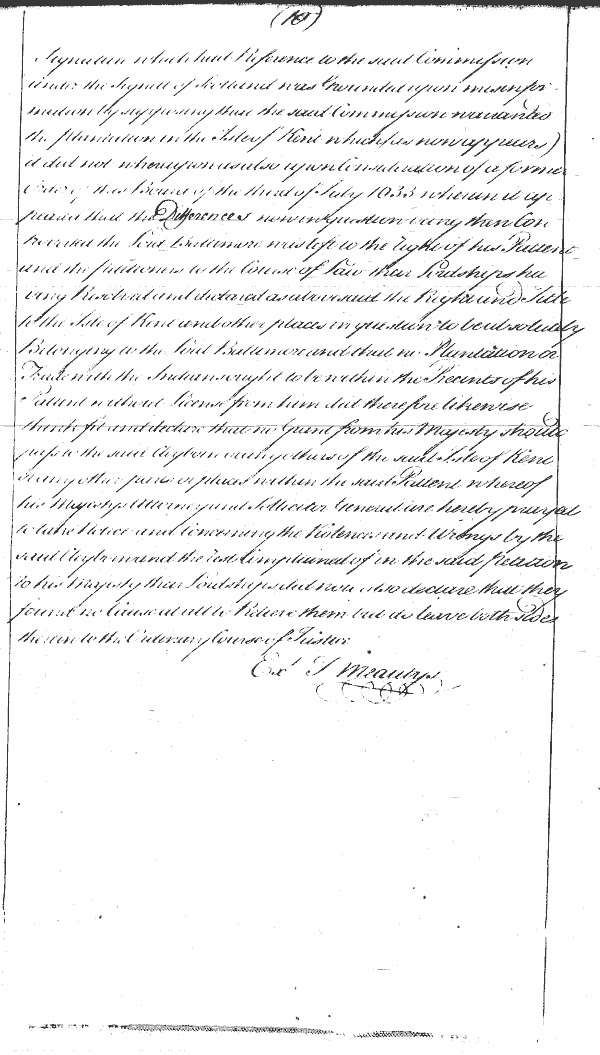 (10)
Signature which had Reference to the said Commission
under the Signett of Scotland was Grounded upon misinfor
mation by supposing that the said Commission warranted
the plantation in the Isle of Kent which (as now appears)
it did not whereupon as also upon Consideration of a former
Order of this Board of the third of July 1633 wherein it ap
peared that the Differences now in question being then Con
troverted the Lord Baltimore was left to the Right of his Patent
and the petitioners to the Course of Law their Lordships ha
ving Resolved and declared as abovesaid the Right and Title
to the Isle of Kent and other places in question to be absolutely
Belonging to the Lord Baltimore and that no Plantation or
Trade with the Indians ought to be within the Precincts of his
Patent without License from him did therefore likewise
think fit and declare that no Grant from his Majesty should
pass to the said Clayborn or any others of the said Isle of Kent
or any other parts or places within the said Patent whereof
his Majestys Attorney and Sollicitor General are hereby prayed
to take Notice and Concerning the Violences and Wrongs by the
said Clayborn and the rest Complained of in the said Petition
to his Majesty their Lordships did now also declare that they
found no Cause at all to Relieve them but do leave both sides
therein to the Ordinary Course of Justice
Ex<sup>t</sup> T Meautys